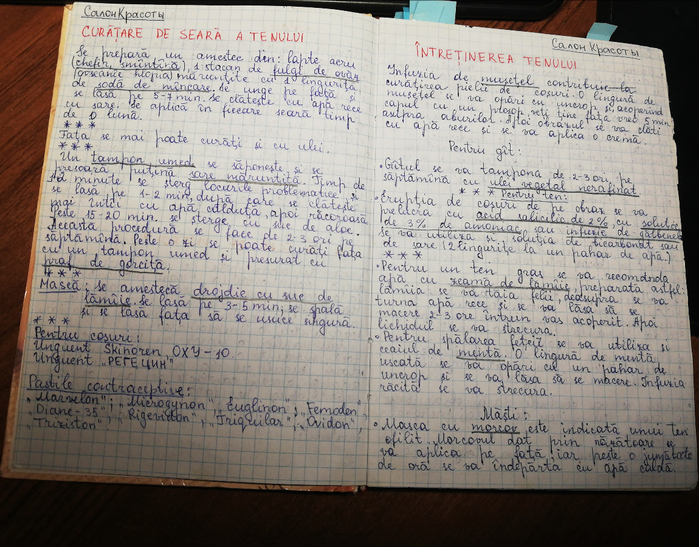 Салон Красоты
CURĂȚARE DE SEARĂ A TENULUI
Se prepară un amestec din: lapte acru
(chefir, smîntînă), 1 stacan de fulgi de ovăs
(gercanie hlopia) mărunțite cu 1 linguriță
de sodă de mîncare. Se unge pe față și
se lasă pe 5-7 min. Se clătește cu apă rece
cu sare. Se aplică în fiecare seară timp
de o lună.
***
Fața se mai poate curăți și cu ulei.
***
Un tampon umed se săponește și se
presoară puțină sare măruntită. Timp de
minute se șterg locurile problematice și
se lasă pe 1-2 min, după care se clătește
mai întîi cu apă călduță, apoi răcoroasă
Peste 15-20 min. se șterge cu suc de aloe.
Această procedură se face de 2-3 ori pe
săptămînă. Peste o zi se poate curăți fața
cu un tampon umed și presurat cu
praf de gorciță.
***
Mască: se amestecă drojdie cu suc de
lămîie. Se lasă pe 3-5 min; se spală
și se lasă fața să se usuce singură.
***
Pentru coșuri:
Unguent Skinoren, OXY-10
Unguent „РЕГЕЦИН"
Pastile contraceptive:
„Marvelon"; „Microgynon" Euglinon"; „Femoden",
„Diane-35", „Rigevidon", „Triquilar", „Ovidon",
„Triziston"
Салон Красоты
ÎNTREȚINEREA TENULUI
Infuzia de mușețel contribuie la
curățirea pielii de coșuri. O lingură de
mușețel o va opări cu uncrop și acoperind
capul cu un prosop, veți ține fața vreo 5 min.
asupra aburilor. Apoi obrazul se va clăti
cu apă rece și se va aplica o cremă.
Pentru gît:
• Gîtul se va tampona de 2-3 ori pe
săptămînă cu ulei vegetal nerafinat
*** Pentru ten:
• Erupția de coșuri de pe obraz se va
prelucra cu acid salicilic de 2%, cu soluție
de 3% de amoniac sau infuzie de gălbenele
Se va utiliza și soluția de bicarbonat sau
de sare (2 lingurițe la un pahar de apă.)
***
• Pentru un ten gras se va recomanda
apă cu zeamă de lămîie, preparată astfel:
lămîia se va tăia felii, deasupra se va
turna apă rece și se va lăsa să se
macere 2-3 ore într-un vas acoperit. Apoi
lichidul se va strecura.
• Pentru spălarea feței se va utiliza și
ceaiul de mentă. O lingură de mentă
uscată se va opări cu un pahar de
uncrop și se va lăsa să se macere. Infuzia
răcită se va strecura.
Măști:
• Masca cu morcov este indicată unui ten
ofilit. Morcovul dat prin răzătoare se
va aplica pe față, iar peste o jumătate
de oră se va îndepărta cu apă caldă.